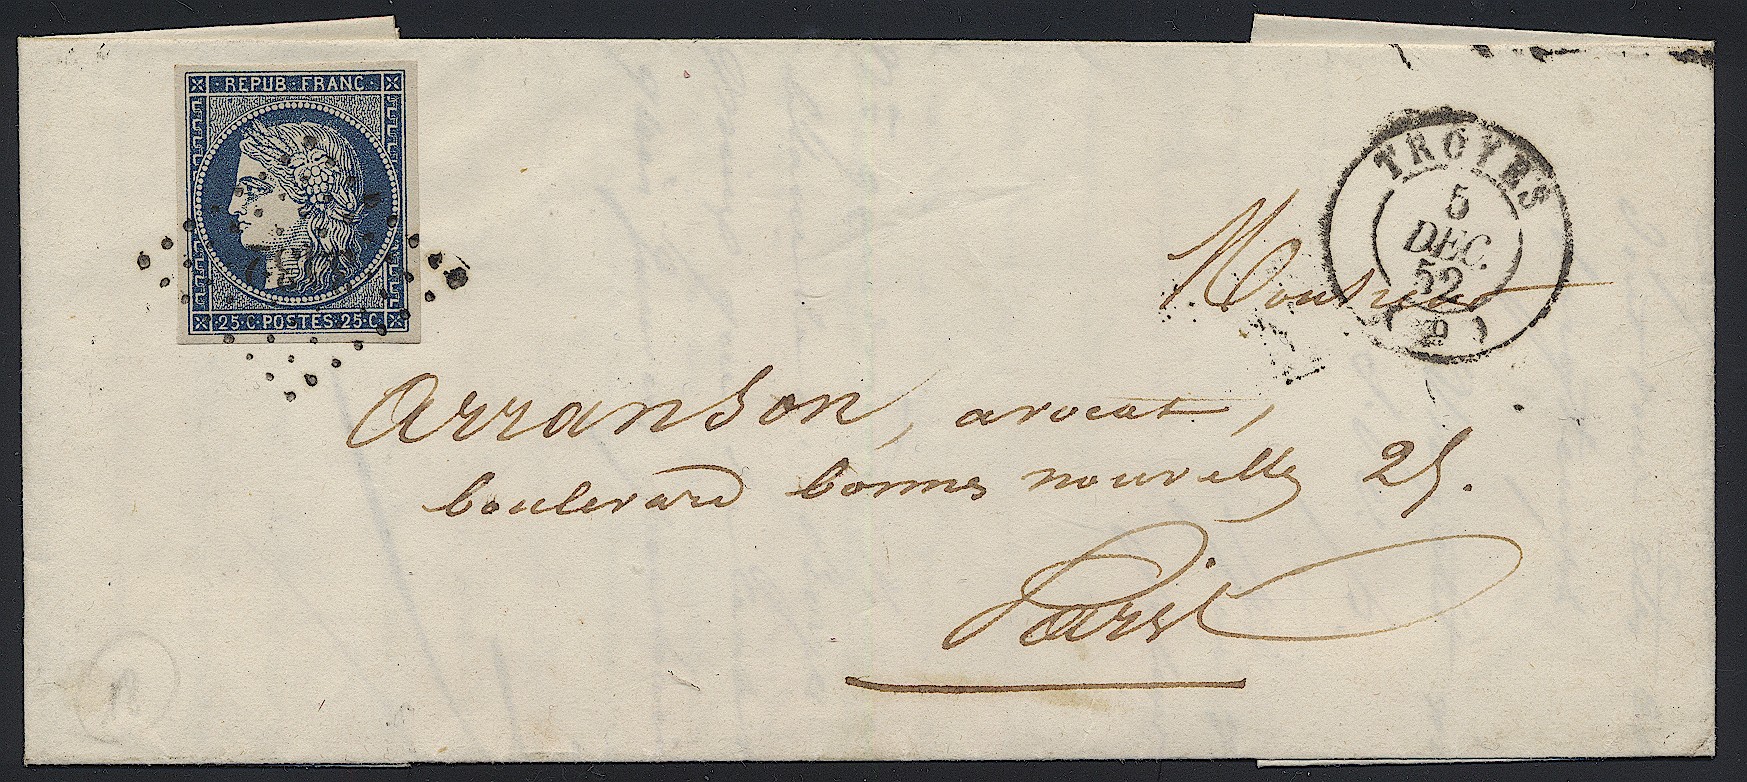 REPUB. FRANC.
25.C. POSTES 25.C
TROYES
5
DEC.
52
Monsieur
Arranson, avocat,
boulevard bonnes nouvelles 25.
Paris